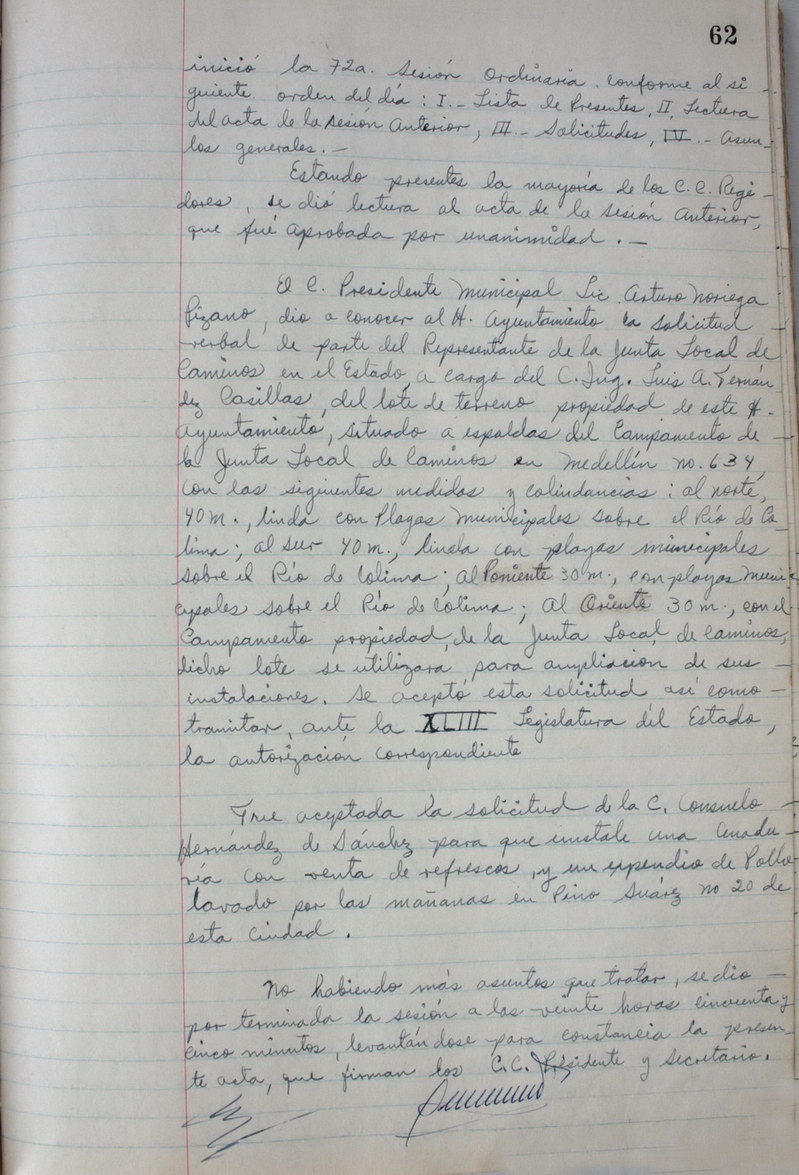 62
inició la 72a. Sesión Ordinaria conforme al si-
guiente orden del día: I.- Lista de Presentes, II, Lectura
del acta de la sesión Anterior, III.- Solicitudes, IV.- Asun-
tos generales.-
Estando presentes la mayoría de los C.C. Regi-
dores, se dió lectura al acta de la sesión Anterior,
que fué aprobada por unanimidad.-
El C. Presidente Municipal Lic. Arturo Noriega
Pizano, dio a conocer al H. Ayuntamiento la solicitud -
verbal de parte del Representante de la Junta Local de
Caminos en el Estado, a cargo del C. Ing. Luis A. Fernán
dez Casillas, del lote de terreno propiedad de este H. -
Ayuntamiento, situado a espaldas del Campamento de -
la Junta Local de Caminos en Medellín no. 634,
con las siguientes medidas y colindancias: al norte,
40 m., linda con Playas Municipales sobre el Río de Co-
lima; al sur 40 m., linda con playas municipales
sobre el Río de Colima; al Poniente 30 m., con playas Muni-
cipales sobre el Río de Colima; Al Oriente 30 m., con el
Campamento propiedad, de la Junta Local de Caminos,
dicho lote se utilizara para ampliación de sus -
instalaciones. Se aceptó esta solicitud así como -
tramitar, ante la XLIII Legislatura del Estado,
la autorización correspondiente
Fue aceptada la solicitud de la C. Consuelo -
Hernández de Sánchez para que instale una Cenadu-
ría con venta de refrescos, y un expendio de Pollo
lavado por las mañanas en Pino Suárez no 20 de
esta Ciudad.
No habiendo más asuntos que tratar, se dio -
por terminada la sesión a las veinte horas cincuenta y
cinco minutos, levantándose para constancia la presen-
te acta, que firman los C.C. Presidente y Secretario.